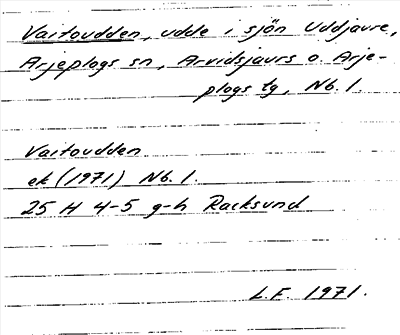 Vaitoudden, udde i sjön Uddjaure,
Arjeplogs sn, Arvidsjaurs o. Arje-
plogs tg, Nb. l.
Vaitoudden
ek (1971) Nb. l.
25 H 4-5 g-h Racksund
L.F. 1971.